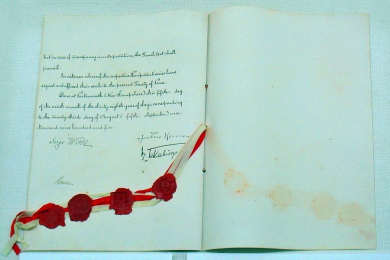 but in case of discrepancy in interpretation, the French text shall
prevail.
In witness whereof the respective Plenipotentiaries have
signed and affixed their seals to the present Treaty of Peace.
Done at Portsmouth (New Hampshire) this fifth day
of the ninth month of the thirty eighth year of Meiji corresponding
to the twenty third day of August (fifth September) one
thousand nine hundred and five.
Serge Witte
Rosen